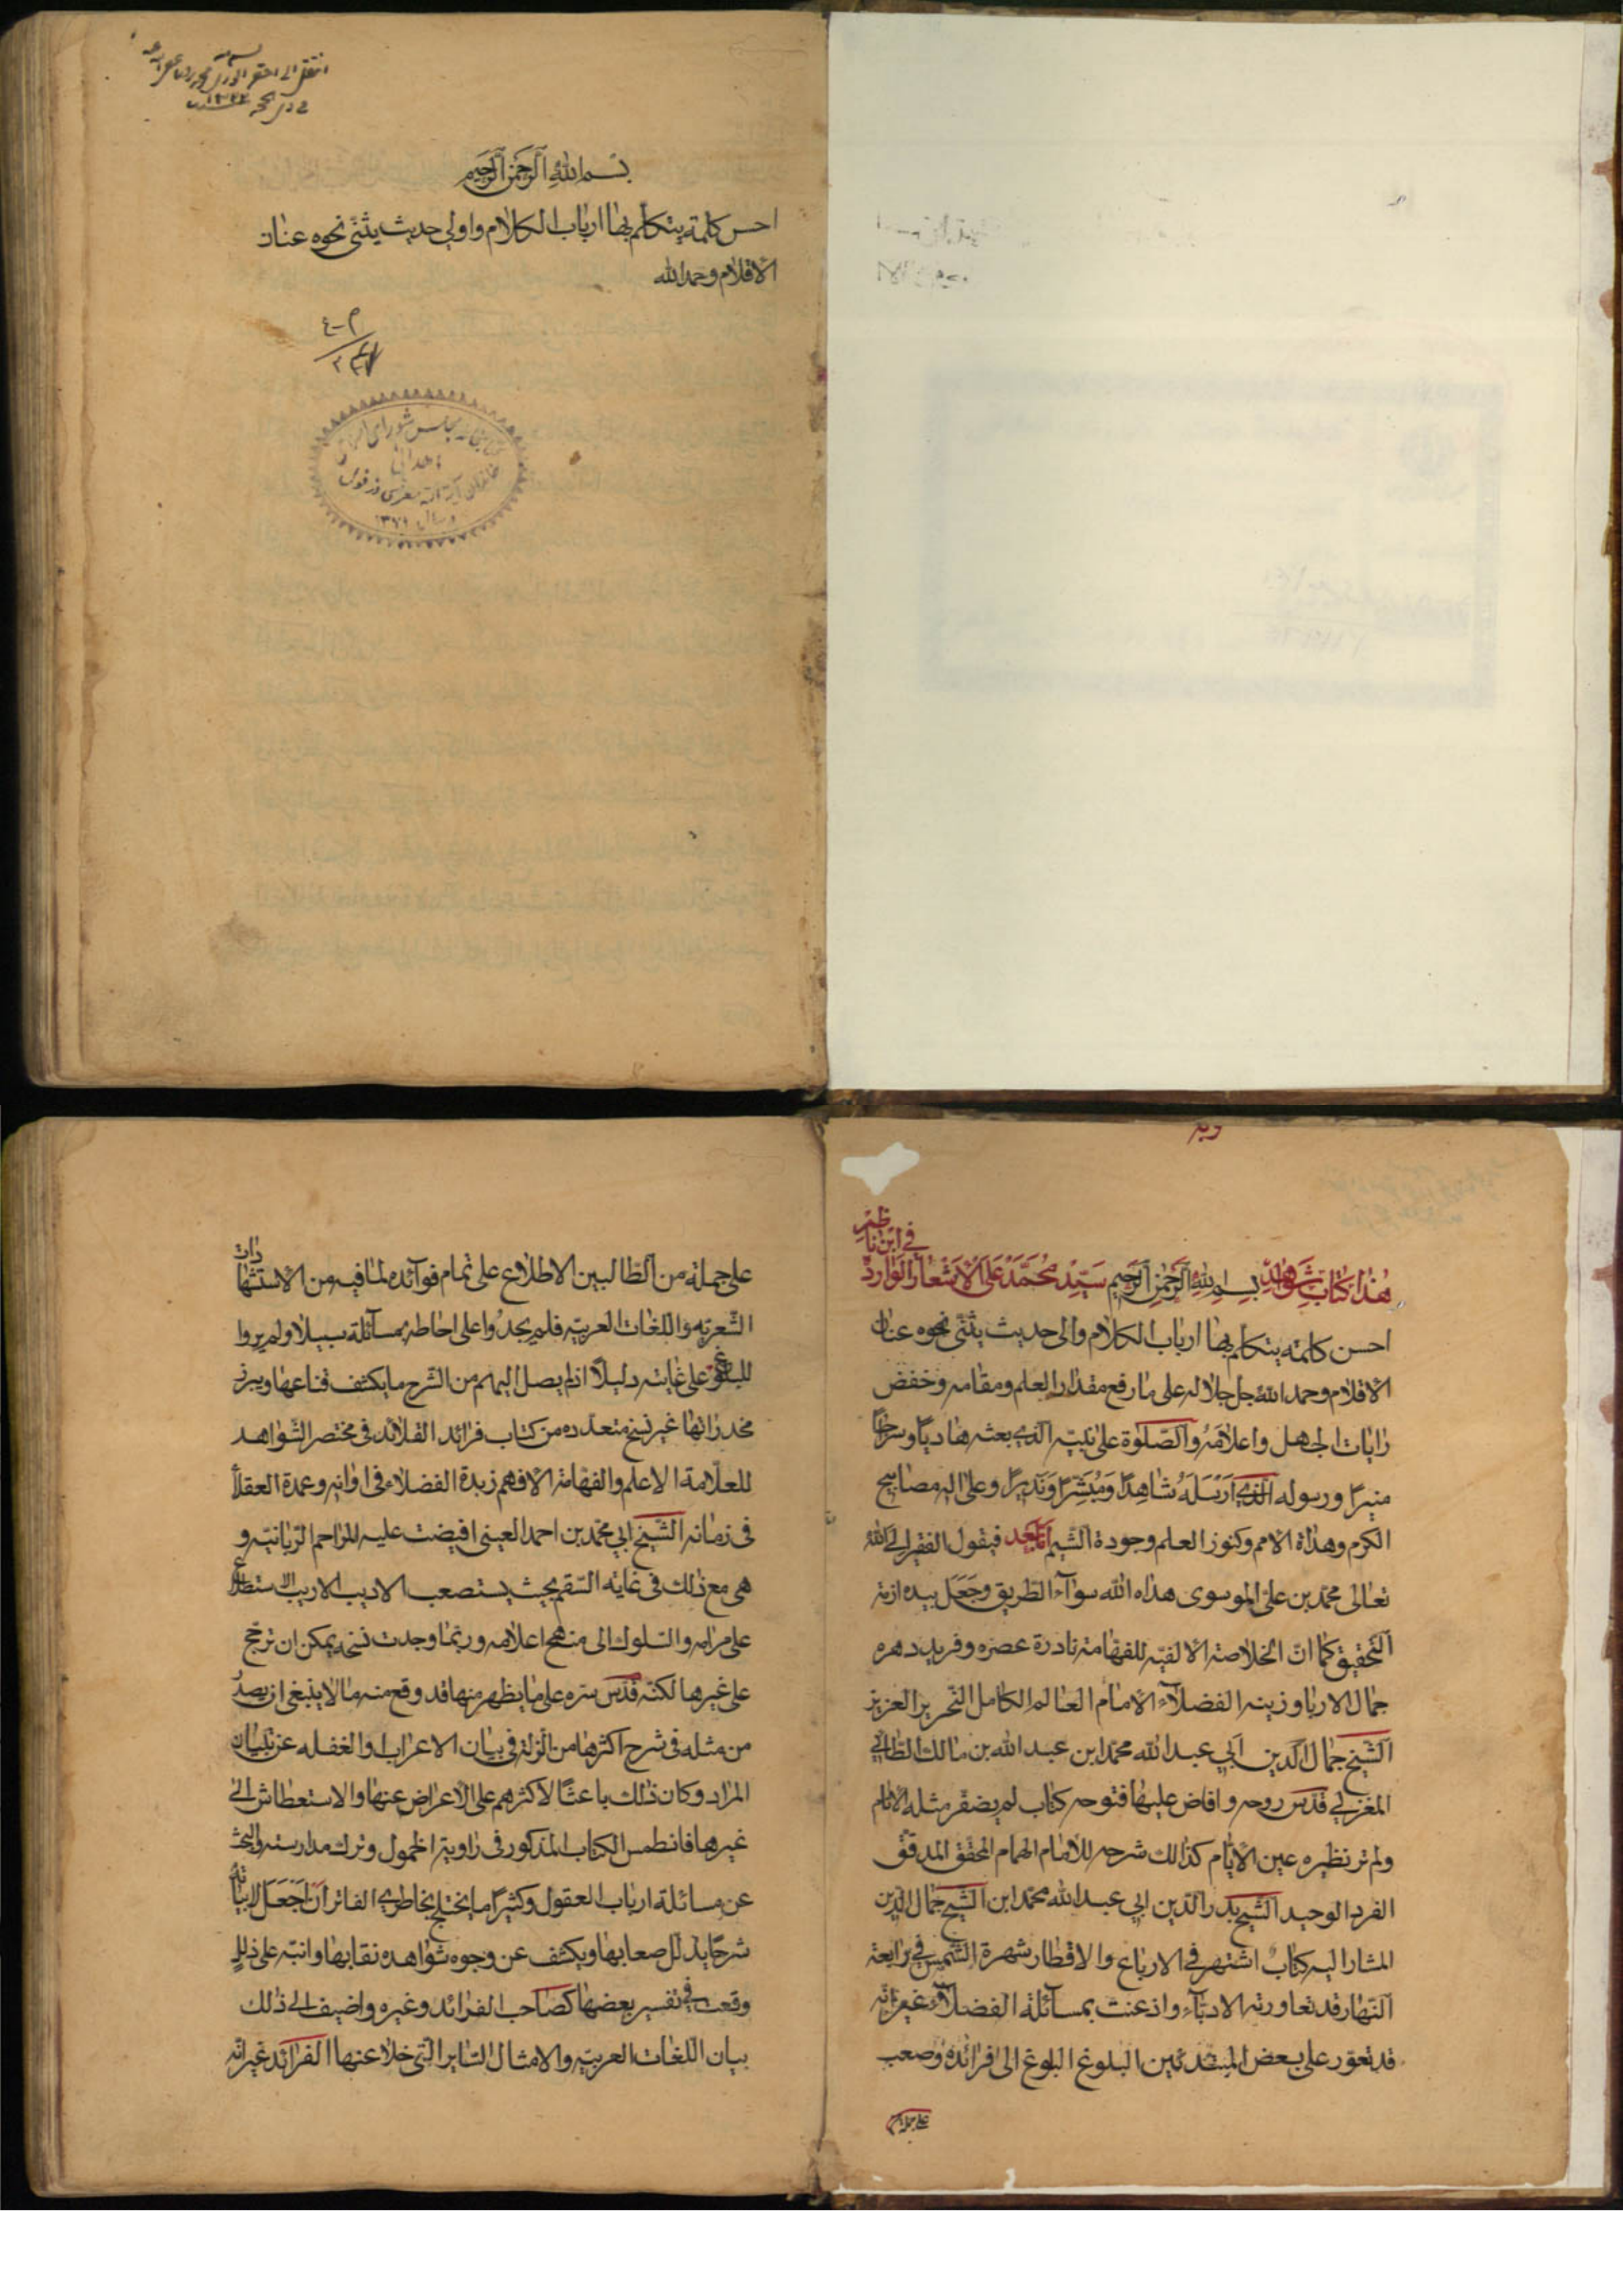 انتقل الى احقر
بسم الله الرحمن الرحيم
احسن كلمة يتكلم بها ارباب الكلام واولى حديث يثنى نحوه عنان
الاقلام وحمد الله
كتابخانه مجلس شورای اسلامی
اهدائی
خاندان آیة الله معزی دزفولی
سال ۱۳۷۱
هذا كتاب شواهد بسم الله الرحمن الرحيم سيد محمد على الاشعار الوارد
في ابن ناظم
احسن كلمته يتكلم بها ارباب الكلام والى حديث يثنى نحوه عنان
الاقلام وحمد الله جل جلاله على ما رفع مقدار العلم ومقامه وخفض
رايات الجهل واعلامه والصلوة على نبيه الذي بعثه هاديا وسراجا
منيرا ورسوله الذي ارسله شاهدا ومبشرا ونذيرا وعلى اله مصابيح
الكرم وهداة الامم وكنوز العلم وجودة الشيم اما بعد فيقول الفقير الى الله
تعالى محمد بن على الموسوى هداه الله سوآء الطريق وجعل بيده ازمة
التحقيق كما ان الخلاصة الالفيه للفهامة نادرة عصره وفريد دهره
جمال الاربا وزينه الفضلآء الامام العالم الكامل النحرير العزيز
الشيخ جمال الدين ابي عبد الله محمد ابن عبد الله بن مالك الطائي
المغربي قدس روحه وافاض عليها فتوحه كتاب لم يضفر مثله الانام
ولم تر نظيره عين الايام كذالك شرحه للامام الهمام المحقق المدقق
الفرد الوحيد الشيخ بدر الدين ابي عبد الله محمد ابن الشيخ جمال الدين
المشار اليه كتاب اشتهر في الارباع والاقطار شهرة الشمس في رابعة
النهار قد تعاورته الادبآء واذعنت بمسآئلة الفضلآء غير انه
قد تعوّر على بعض المبتدئين البلوغ البلوغ الى فرائده وصعب
على جملة
على جملة من الطالبين الاطلاع على تمام فوآئده لما فيه من الاستشهادات
الشعريه واللغات العربيه فلم يجدوا على احاطه بمسآئلة سبيلا ولم يروا
للبلوغ على غايته دليلا اذ لم يصل اليهم من الشرح ما يكشف قناعها ويبرز
مخدراتها غير نسخ متعدده من كتاب فرائد القلائد فى مختصر الشواهد
للعلامة الاعلم والفهامة الافهم زبدة الفضلاء فى اوانه وعمدة العقلآ
فى زمانه الشيخ ابي محمد بن احمد العينى افيضت عليه المراحم الربانيه و
هى مع ذلك فى غايه السقم بحيث يستصعب الاديب الاريب الاستطلاع
على مرامه والسلوك الى منهج اعلامه وربما وجدت نسخه يمكن ان ترجح
على غيرها لكنه قدس سره على ما يظهر منها قد وقع منه ما لا ينبغى ان يصدر
من مثله فى شرح اكثرها من الزلة فى بيان الاعراب والغفله عن تبيان
المراد وكان ذلك باعثا لاكثرهم على الاعراض عنها والاستعطاش الى
غيرها فانطمس الكتاب المذكور فى زاوية الخمول وترك مدارسته والبحث
عن مسائلة ارباب العقول وكثيرا ما يختلج بخاطرى الفاتر ان اجعل لابياته
شرحا يذلل صعابها ويكشف عن وجوه شواهده نقابها وانبه على زلة
وقعت في تفسير بعضها كصاحب الفرائد وغيره واضيف الى ذلك
بيان اللغات العربيه والامثال السايرالتى خلا عنها الفرائد غير انه